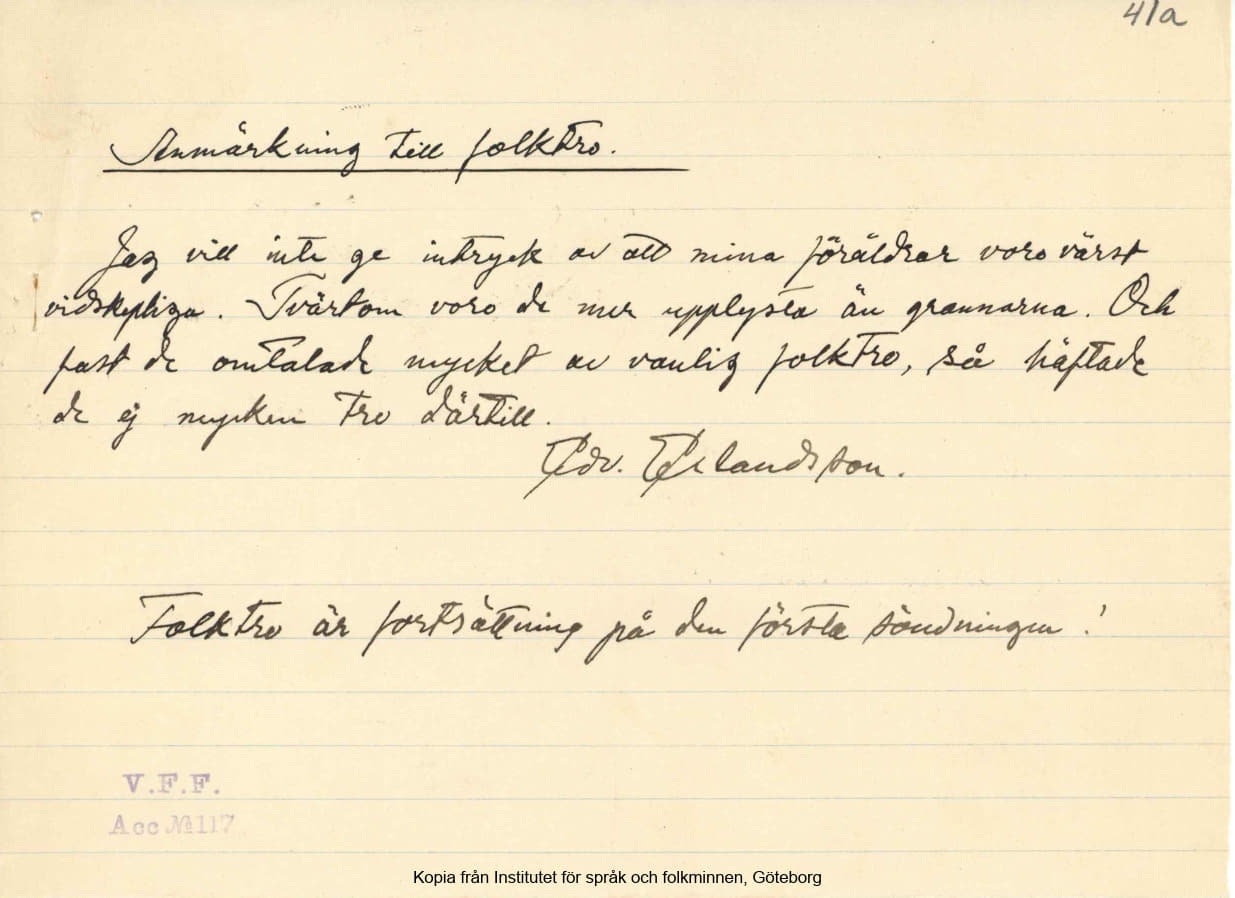 41a
Anmärkning till folktro.
Jag vill inte ge intryck av att mina föräldrar voro värst
vidskepliga. Tvärtom voro de mer upplysta än grannarna. Och
fast de omtalade mycket av vanlig folktro, så häftade
de ej mycken tro därtill.
Edv. Erlandsson.
Folktro är fortsättning på den första sändningen!
V.F.F.
Acc №117
Kopia från Institutet för språk och folkminnen, Göteborg